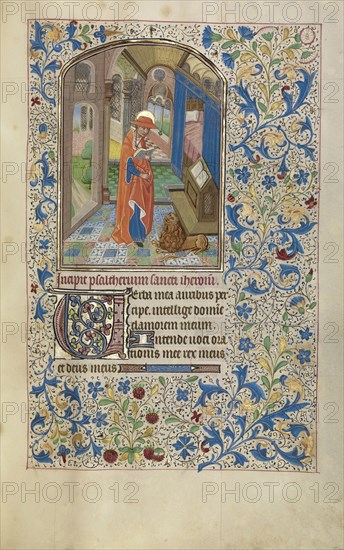 Incipit psalterium sancti iheroni.
Verba mea auribus per
cipe. intellige domine
clamorem meum.
Intende voci ora
tionis mee rex meus
et deus meus